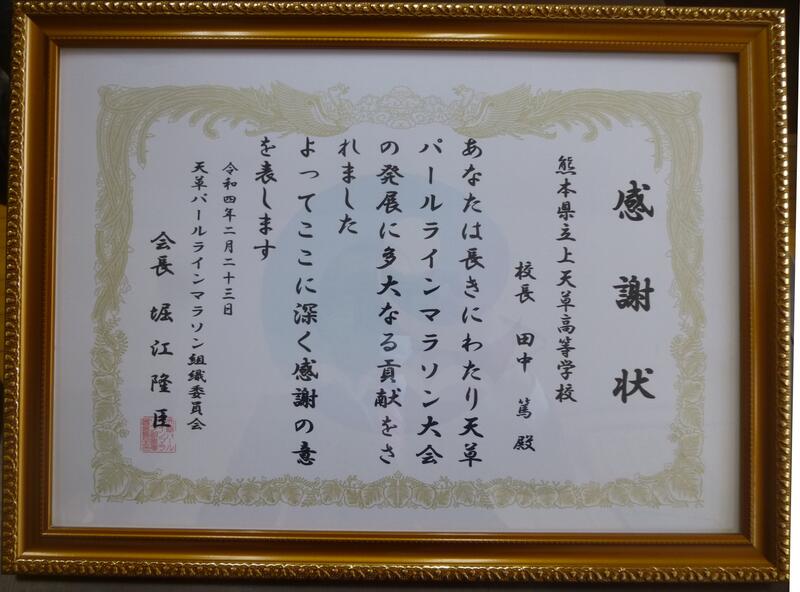 感謝状
熊本県立上天草高等学校
校長 田中 篤 殿
あなたは長きにわたり天草
パールラインマラソン大会
の発展に多大なる貢献をさ
れました
よってここに深く感謝の意
を表します
令和四年二月二十三日
天草パールラインマラソン組織委員会
会長 堀江隆臣